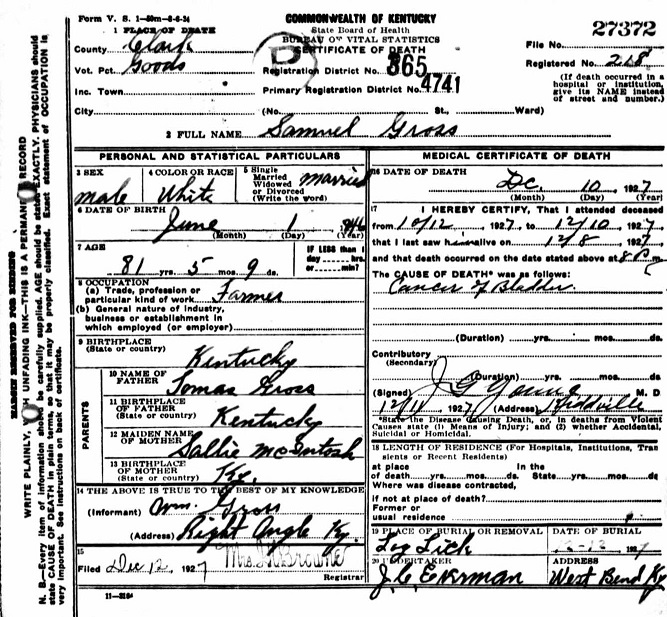 Form V. S. 1-50m-8-6-24
COMMONWEALTH OF KENTUCKY
State Board of Health
BUREAU OF VITAL STATISTICS
CERTIFICATE OF DEATH
27372
1 PLACE OF DEATH
County Clark
File No.
Vot. Pct. Goods
Registration District No. 365
Registered No. 218
Inc. Town
Primary Registration District No. 4741
(If death occurred in a hospital or institution, give its NAME instead of street and number.)
City (No. St., Ward)
2 FULL NAME Samuel Gross
PERSONAL AND STATISTICAL PARTICULARS
3 SEX male
4 COLOR OR RACE White
5 Single Married Widowed or Divorced (Write the word) Married
6 DATE OF BIRTH June 1 1846
(Month) (Day) (Year)
7 AGE 81 yrs. 5 mos. 9 ds.
IF LESS than 1 day hrs. or min?
8 OCCUPATION
(a) Trade, profession or particular kind of work Farmer
(b) General nature of industry, business or establishment in which employed (or employer)
9 BIRTHPLACE (State or country) Kentucky
PARENTS
10 NAME OF FATHER Tomas Gross
11 BIRTHPLACE OF FATHER (State or country) Kentucky
12 MAIDEN NAME OF MOTHER Sallie McIntosh
13 BIRTHPLACE OF MOTHER (State or country) Ky.
14 THE ABOVE IS TRUE TO THE BEST OF MY KNOWLEDGE
(Informant) Wm. Gross
(Address) Right Angle Ky.
15 Filed Dec 12, 1927 Mrs. Browne
Registrar
11-3184
MEDICAL CERTIFICATE OF DEATH
16 DATE OF DEATH Dc. 10, 1927
(Month) (Day) (Year)
17 I HEREBY CERTIFY, That I attended deceased
from 10/12 1927, to 12/10 1927
that I last saw him alive on 12/8 1927
and that death occurred on the date stated above at 8 P m.
The CAUSE OF DEATH* was as follows:
Cancer of Bladder
(Duration) yrs. mos. ds.
Contributory (Secondary)
(Duration) yrs. mos. ds.
(Signed) Young M. D.
12/11 1927 (Address) Kiddville
*State the Disease Causing Death, or, in deaths from Violent Causes state (1) Means of Injury; and (2) whether Accidental, Suicidal or Homicidal.
18 LENGTH OF RESIDENCE (For Hospitals, Institutions, Transients or Recent Residents)
at place of death yrs. mos. ds. In the State yrs. mos. ds.
Where was disease contracted, if not at place of death?
Former or usual residence
19 PLACE OF BURIAL OR REMOVAL Log Lick
DATE OF BURIAL
20 UNDERTAKER J. C. Eckerman
ADDRESS West Bend Ky
MARGIN RESERVED FOR BINDING
WRITE PLAINLY, WITH UNFADING INK—THIS IS A PERMANENT RECORD
N. B.—Every item of information should be carefully supplied. AGE should be stated EXACTLY. PHYSICIANS should
state CAUSE OF DEATH in plain terms, so that it may be properly classified. Exact statement of OCCUPATION is
very important. See instructions on back of certificate.